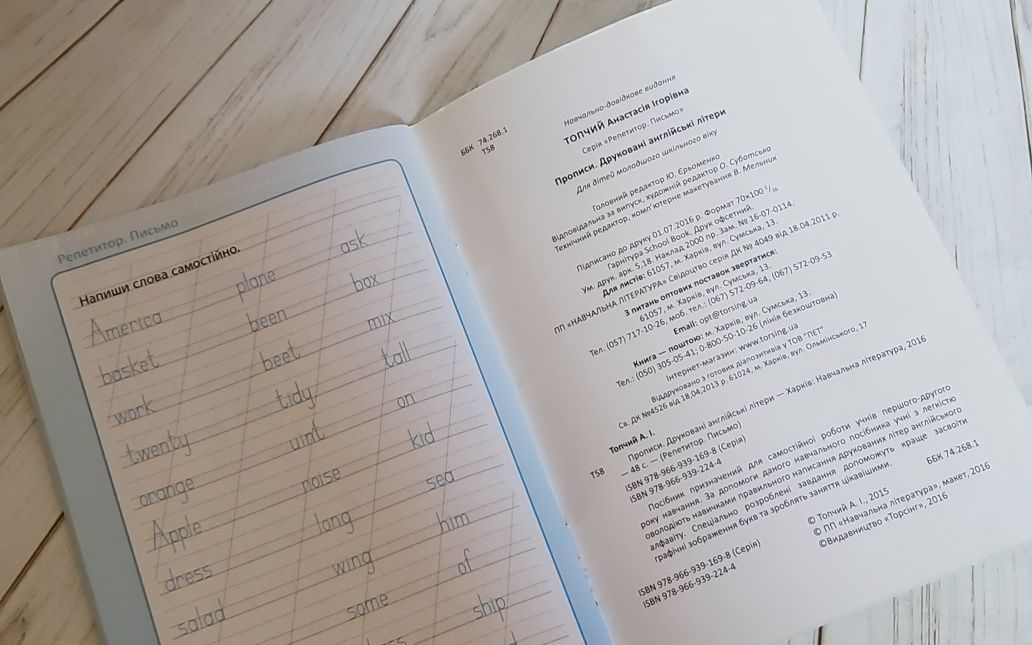 Репетитор. Письмо
Напиши слова самостійно.
America plane ask
basket been box
work beet mix
twenty tidy tall
orange uint on
Apple noise kid
dress long sea
salad wing him
some of
ship
ББК 74.268.1
Т58
Навчально-довідкове видання
ТОПЧИЙ Анастасія Ігорівна
Серія «Репетитор. Письмо»
Прописи. Друковані англійські літери
Для дітей молодшого шкільного віку
Головний редактор Ю. Єрьоменко
Відповідальна за випуск, художній редактор О. Суботська
Технічний редактор, комп'ютерне макетування В. Мельник
Підписано до друку 01.07.2016 р. Формат 70×100 1/16
Гарнітура School Book. Друк офсетний.
Ум. друк. арк. 5,18. Наклад 2000 пр. Зам. № 16-07-0114.
Для листів: 61057, м. Харків, вул. Сумська, 13.
ПП «НАВЧАЛЬНА ЛІТЕРАТУРА» Свідоцтво серія ДК № 4049 від 18.04.2011 р.
З питань оптових поставок звертатися:
61057, м. Харків, вул. Сумська, 13.
Тел. (057) 717-10-26, моб. тел.: (067) 572-09-64, (067) 572-09-53
Email: opt@torsing.ua
Книга — поштою: м. Харків, вул. Сумська, 13.
Тел.: (050) 305-05-41; 0-800-50-10-26 (лінія безкоштовна)
Інтернет-магазин: www.torsing.ua
Віддруковано з готових діапозитивів у ТОВ "ПЕТ"
Св. ДК №4526 від 18.04.2013 р. 61024, м. Харків, вул. Ольмінського, 17
Топчий А. І.
Т58 Прописи. Друковані англійські літери — Харків: Навчальна література, 2016
— 48 с. — (Репетитор. Письмо)
ISBN 978-966-939-169-8 (Серія)
ISBN 978-966-939-224-4
Посібник призначений для самостійної роботи учнів першого-другого
року навчання. За допомоги даного навчального посібника учні з легкістю
оволодіють навичками правильного написання друкованих літер англійського
алфавіту. Спеціально розроблені завдання допоможуть краще засвоїти
графічні зображення букв та зроблять заняття цікавішими.
ББК 74.268.1
© Топчий А. І., 2015
© ПП «Навчальна література», макет, 2016
©Видавництво «Торсінг», 2016
ISBN 978-966-939-169-8 (Серія)
ISBN 978-966-939-224-4